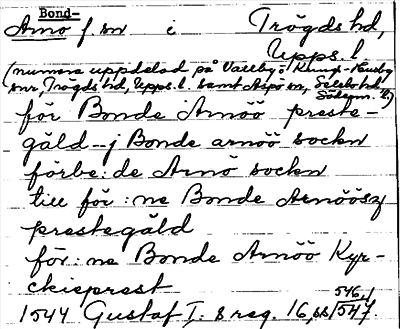 Bond-
Arnö f. sn i Trögds hd,
Upps. l.
(numera uppdelad på Vallby o. Kungs-Husby
snr, Trögds hd, Upps. l. samt Aspö sn, Selebo hd
Söderm. l.)
för Bonde Arnöö preste-
gäld --j Bonde arnöö sockn
förbe: de Arnö sockn
till för: ne Bonde Arnöösz
prestegäld
för: ne Bonde Arnöö Kyr-
ckieprest
546,1
1544 Gustaf I: s reg. 16, ss 547.